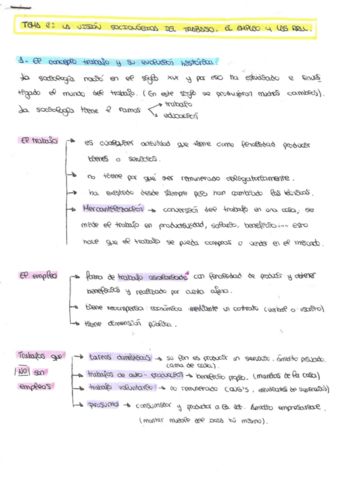 TEMA 2: LA VISIÓN SOCIOLÓGICA DEL TRABAJO, EL EMPLEO Y LAS RRLL.
1- El concepto trabajo y su evolución histórica
La sociología nació en el siglo XIX y por eso ha estudiado e
tigado el mundo del trabajo. (En este siglo se produjeron muchos cambios).
La sociología tiene 2 ramas → trabajo
→ educación
El trabajo → es cualquier actividad que tiene como finalidad producir
bienes o servicios.
→ no tiene por qué ser remunerado obligatoriamente.
→ ha existido desde siempre pero han cambiado
→ Mercantilización → conversión del trabajo en una cosa, se
mide el trabajo en productividad, salario, beneficio... esto
hace que el trabajo se pueda comprar o vender en el mercado.
El empleo → forma de trabajo asalariado con finalidad de producir y obtener
beneficios y realizado por cuenta ajena.
→ tiene recompensa económica mediante un contrato (verbal o escrito)
→ tiene dimensión pública.
Trabajos que NO son empleos → tareas domésticas → su fin es producir un servicio. ámbito privado
(ama de casa).
→ trabajos de auto-producción → beneficio propio. (muebles de la casa)
→ trabajo voluntario → no remunerado (ONG's,
→ prosumo → consumidor y productor a la vez.
(montar mueble del casa tú mismo).